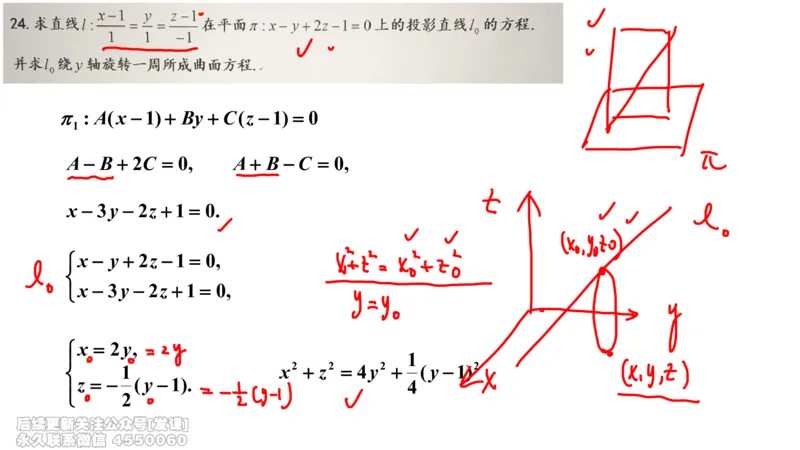 24. 求直线 l : \frac{x-1}{1} = \frac{y}{1} = \frac{z-1}{-1} 在平面 π : x − y + 2z − 1 = 0 上的投影直线 l₀ 的方程.
并求 l₀ 绕 y 轴旋转一周所成曲面方程.
π₁ : A(x − 1) + By + C(z − 1) = 0
A − B + 2C = 0, A + B − C = 0,
x − 3y − 2z + 1 = 0.
l₀ { x − y + 2z − 1 = 0,
x − 3y − 2z + 1 = 0,
{ x₀ = 2y₀, = 2y
z₀ = −\frac{1}{2}(y₀ − 1). = −\frac{1}{2}(y−1)
x² + z² = 4y² + \frac{1}{4}(y − 1)²
x² + z² = x₀² + z₀²
y = y₀
π
z
l₀
(x₀, y₀, z₀)
y
x
(x, y, z)
后续更新关注公众号[发课]
永久联系微信 4550060